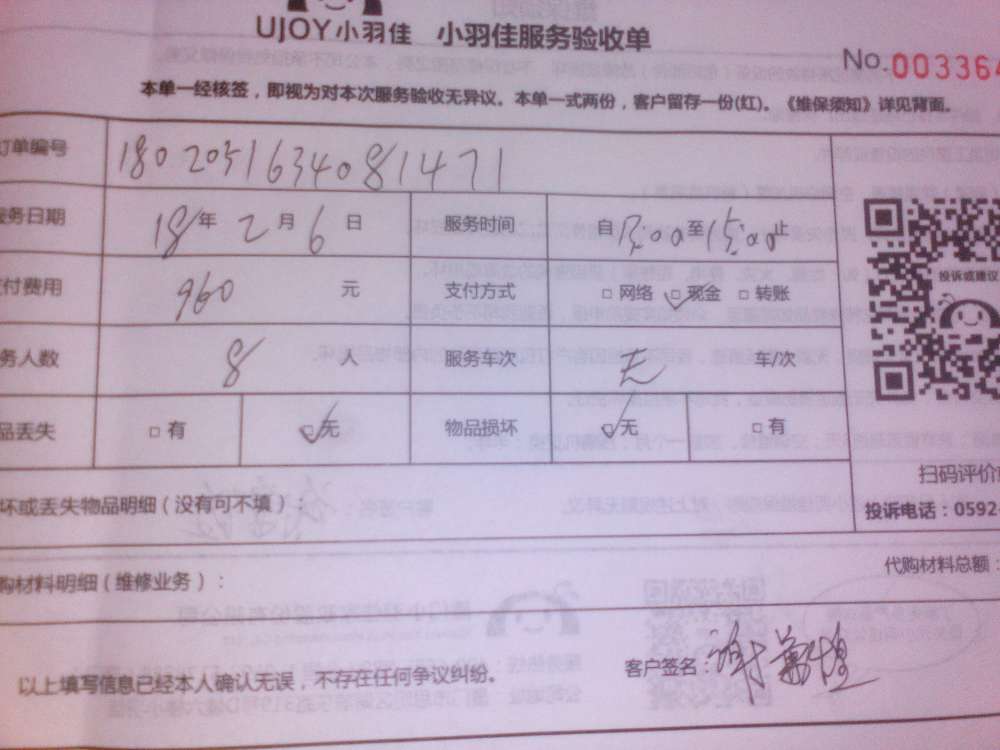 UJOY小羽佳 小羽佳服务验收单
No.003364
本单一经核签，即视为对本次服务验收无异议。本单一式两份，客户留存一份(红)。《维保须知》详见背面。
订单编号 180205163408 1471
服务日期 18年 2月 6日 服务时间 自13:00至15:00止
支付费用 960 元 支付方式 □网络 ☑现金 □转账
投诉或建议
务人数 8 人 服务车次 无 车/次
品丢失 □有 ☑无 物品损坏 ☑无 □有
扫码评价
坏或丢失物品明细（没有可不填）：
投诉电话：0592-
代购材料总额：
购材料明细（维修业务）：
客户签名：谢
以上填写信息已经本人确认无误，不存在任何争议纠纷。